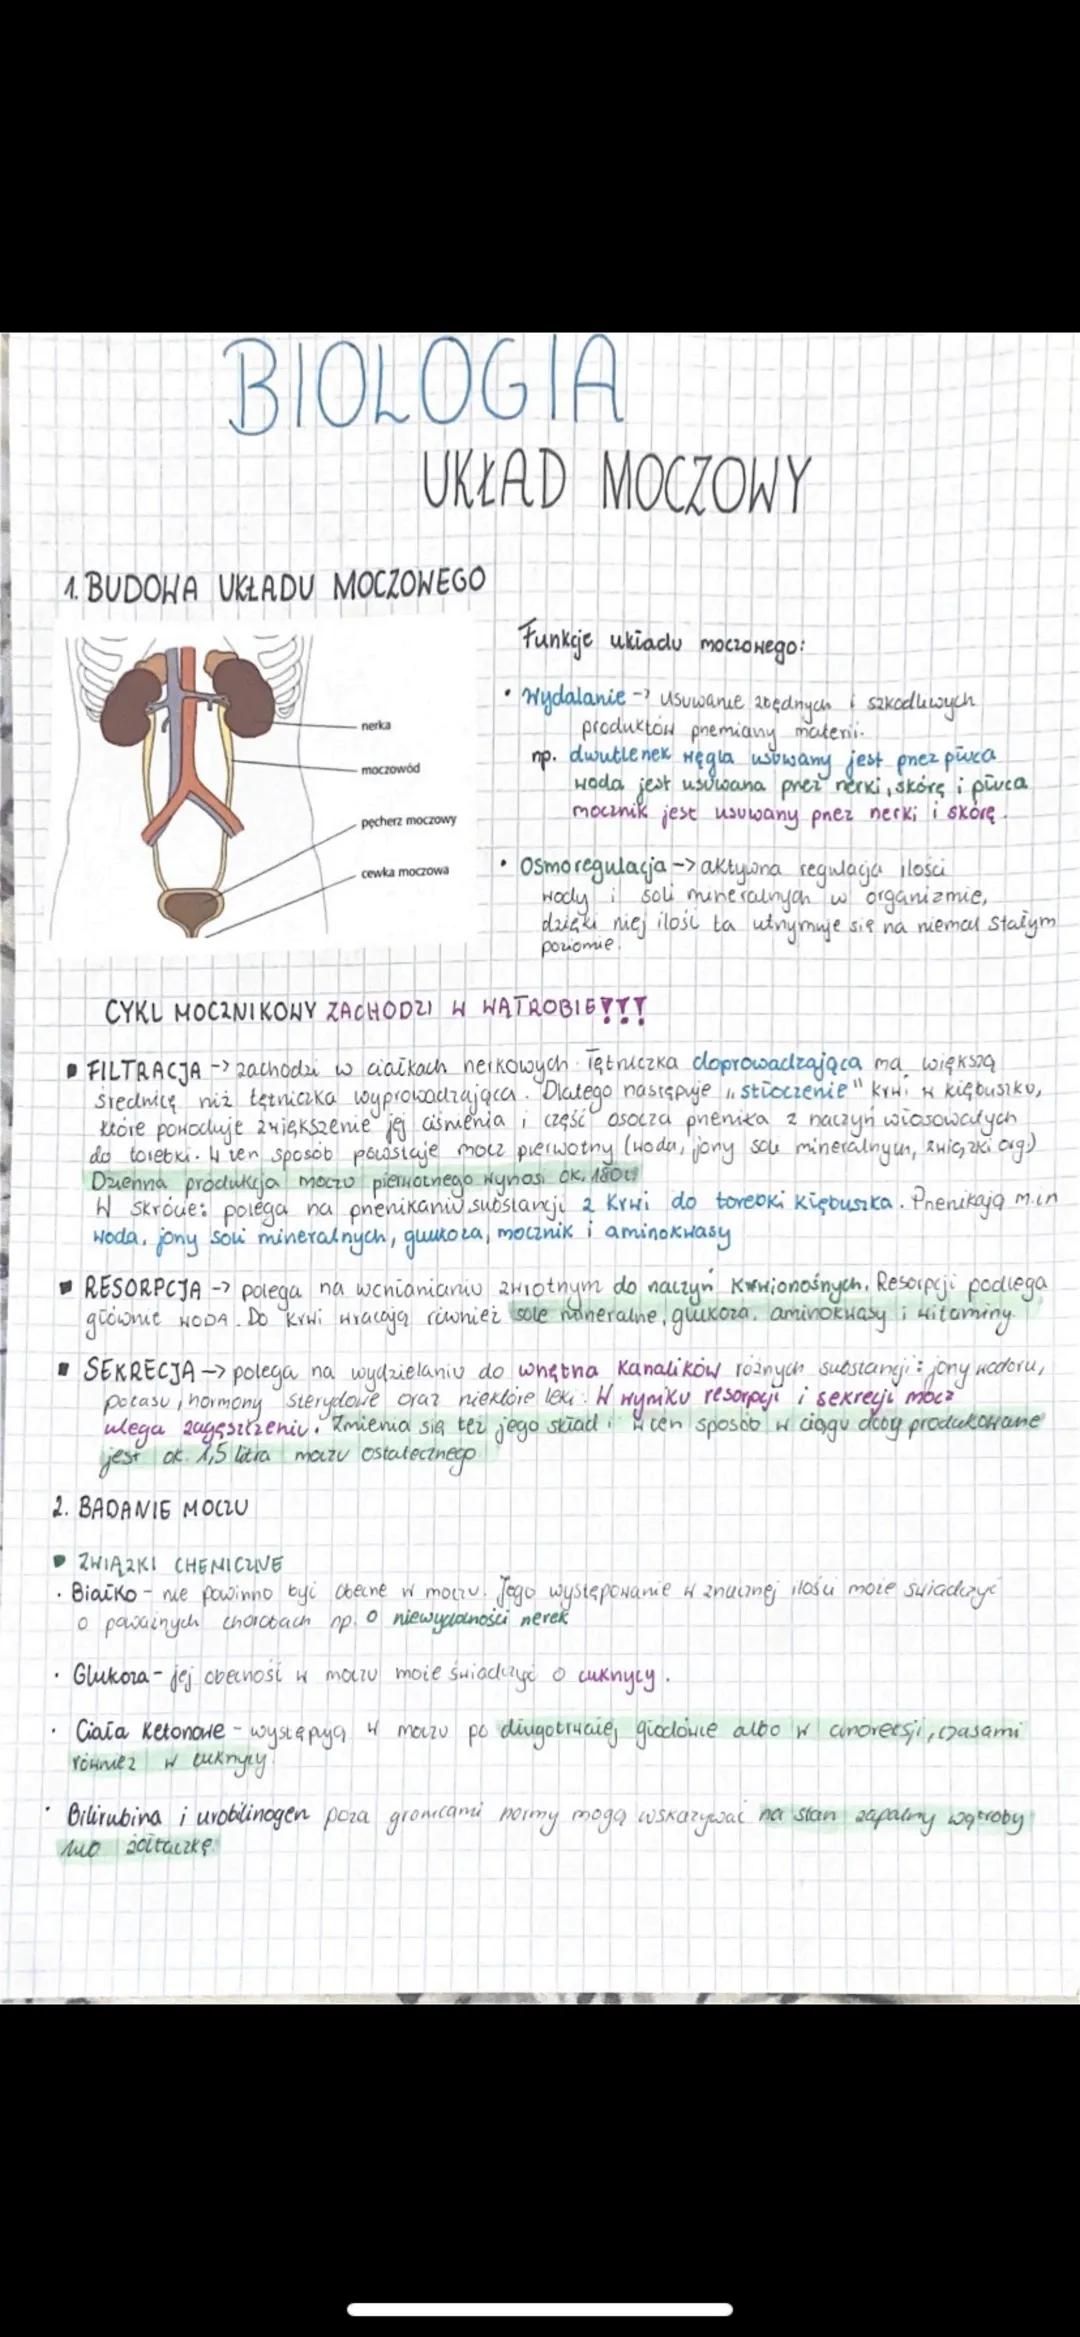 BIOLOGIA
UKŁAD MOCZOWY
1. BUDOWA UKŁADU MOCZOWEGO
nerka
moczowód
pęcherz moczowy
cewka moczowa
Funkcje układu moczowego:
• Wydalanie -> usuwanie zbędnych i szkodliwych
produktów przemiany materii.
np. dwutlenek węgla usuwany jest przez płuca
woda jest usuwana przez nerki, skórę i płuca
mocznik jest usuwany przez nerki i skórę.
• Osmoregulacja -> aktywna regulacja ilości
wody i soli mineralnych w organizmie,
dzięki niej ilość ta utrzymuje się na niemal stałym
poziomie.
CYKL MOCZNIKOWY ZACHODZI W WĄTROBIE!!!
FILTRACJA -> zachodzi w ciałkach nerkowych. Tętniczka doprowadzająca ma większą
średnicę niż tętniczka wyprowadzająca. Dlatego następuje „stłoczenie" krwi w kłębuszku,
które powoduje zwiększenie jej ciśnienia i część osocza przenika z naczyń włosowatych
do torebki. W ten sposób powstaje mocz pierwotny (woda, jony soli mineralnych, związki org.)
Dzienna produkcja moczu pierwotnego wynosi ok. 180
W skrócie: polega na przenikaniu substancji z krwi do torebki kłębuszka. Przenikają m.in
woda, jony soli mineralnych, glukoza, mocznik i aminokwasy
RESORPCJA -> polega na wchłanianiu zwrotnym do naczyń krwionośnych. Resorpcji podlega
głównie WODA. Do krwi wracają również sole mineralne, glukoza, aminokwasy i witaminy.
SEKRECJA -> polega na wydzielaniu do wnętrza kanalików różnych substancji: jony wodoru,
potasu, hormony sterydowe oraz niektóre leki. W wyniku resorpcji i sekrecji mocz
ulega zagęszczeniu. Zmienia się też jego skład i w ten sposób w ciągu doby produkowane
jest ok. 1,5 litra moczu ostatecznego
2. BADANIE MOCZU
ZWIĄZKI CHEMICZNE
• Białko - nie powinno być obecne w moczu. Jego występowanie w znacznej ilości może świadczyć
o poważnych chorobach np. o niewydolności nerek
• Glukoza - jej obecność w moczu może świadczyć o cukrzycy.
• Ciała ketonowe - występują w moczu po długotrwałej głodówce albo w anoreksji, czasami
również w cukrzycy.
• Bilirubina i urobilinogen poza granicami normy mogą wskazywać na stan zapalny wątroby
lub żółtaczkę.